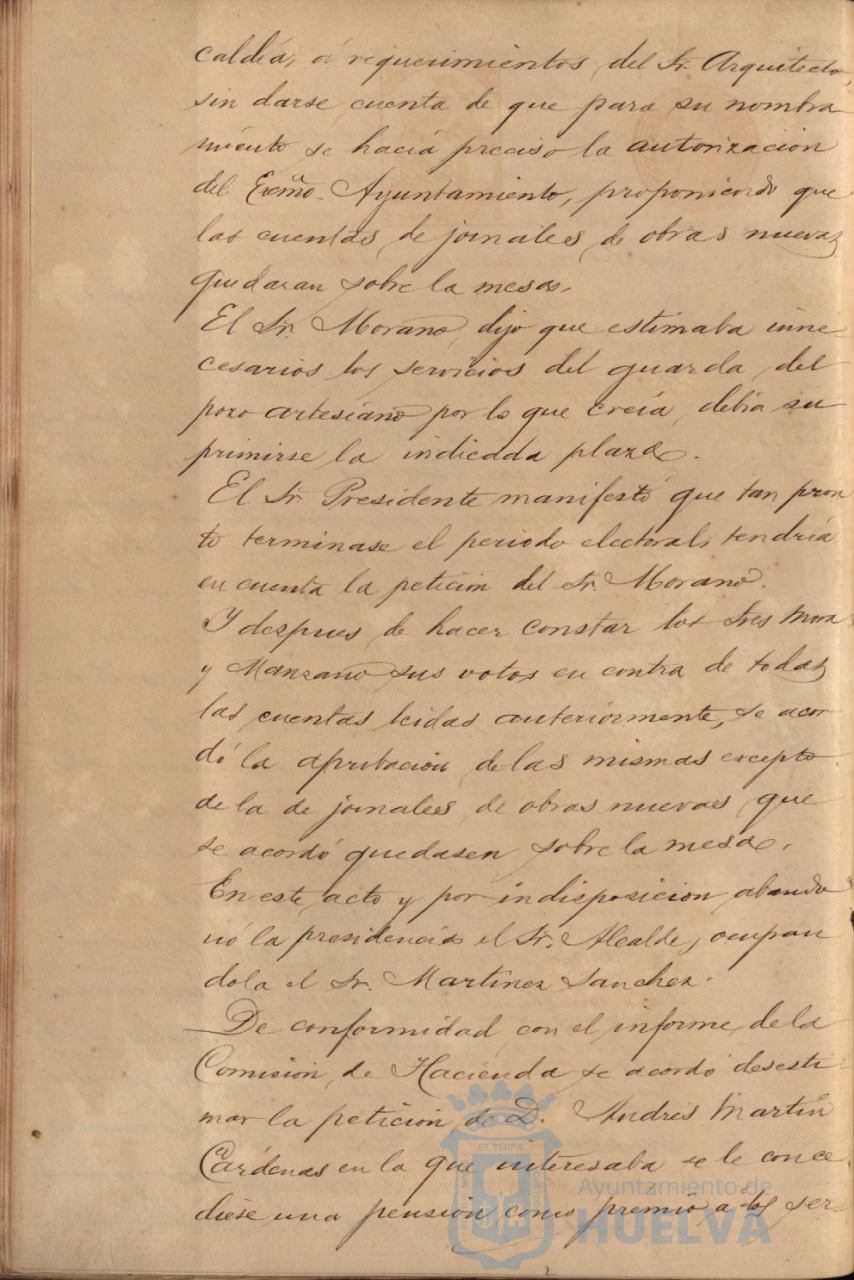 caldía, á requerimientos del Sr. Arquitecto,
sin darse cuenta de que para su nombra
miento se hacia preciso la autorizacion
del Excmo. Ayuntamiento, proponiendo que
las cuentas de jornales de obras nuevas
quedaran sobre la mesa.
El Sr. Morano dijo que estimaba inne-
cesarios los servicios del guarda del
pozo artesiano por lo que creía debia su
primirse la indicada plaza.
El Sr. Presidente manifestó que tan pron
to terminase el periodo electoral, tendría
en cuenta la peticion del Sr. Morano.
Y despues de hacer constar los Sres Mora
y Manzano sus votos en contra de todas
las cuentas leidas anteriormente, se acor
dó la aprobacion de las mismas excepto
de la de jornales de obras nuevas que
se acordó quedasen sobre la mesa.
En este acto y por indisposicion abando
nó la presidencia el Sr. Alcalde, ocupan
dola el Sr. Martinez Sanchez.
De conformidad con el informe de la
Comision de Hacienda se acordó desesti-
mar la peticion de D. Andrés Martin
Cárdenas en la que interesaba se le conce
diese una pensión como premio a los ser-
Ayuntamiento de
HUELVA